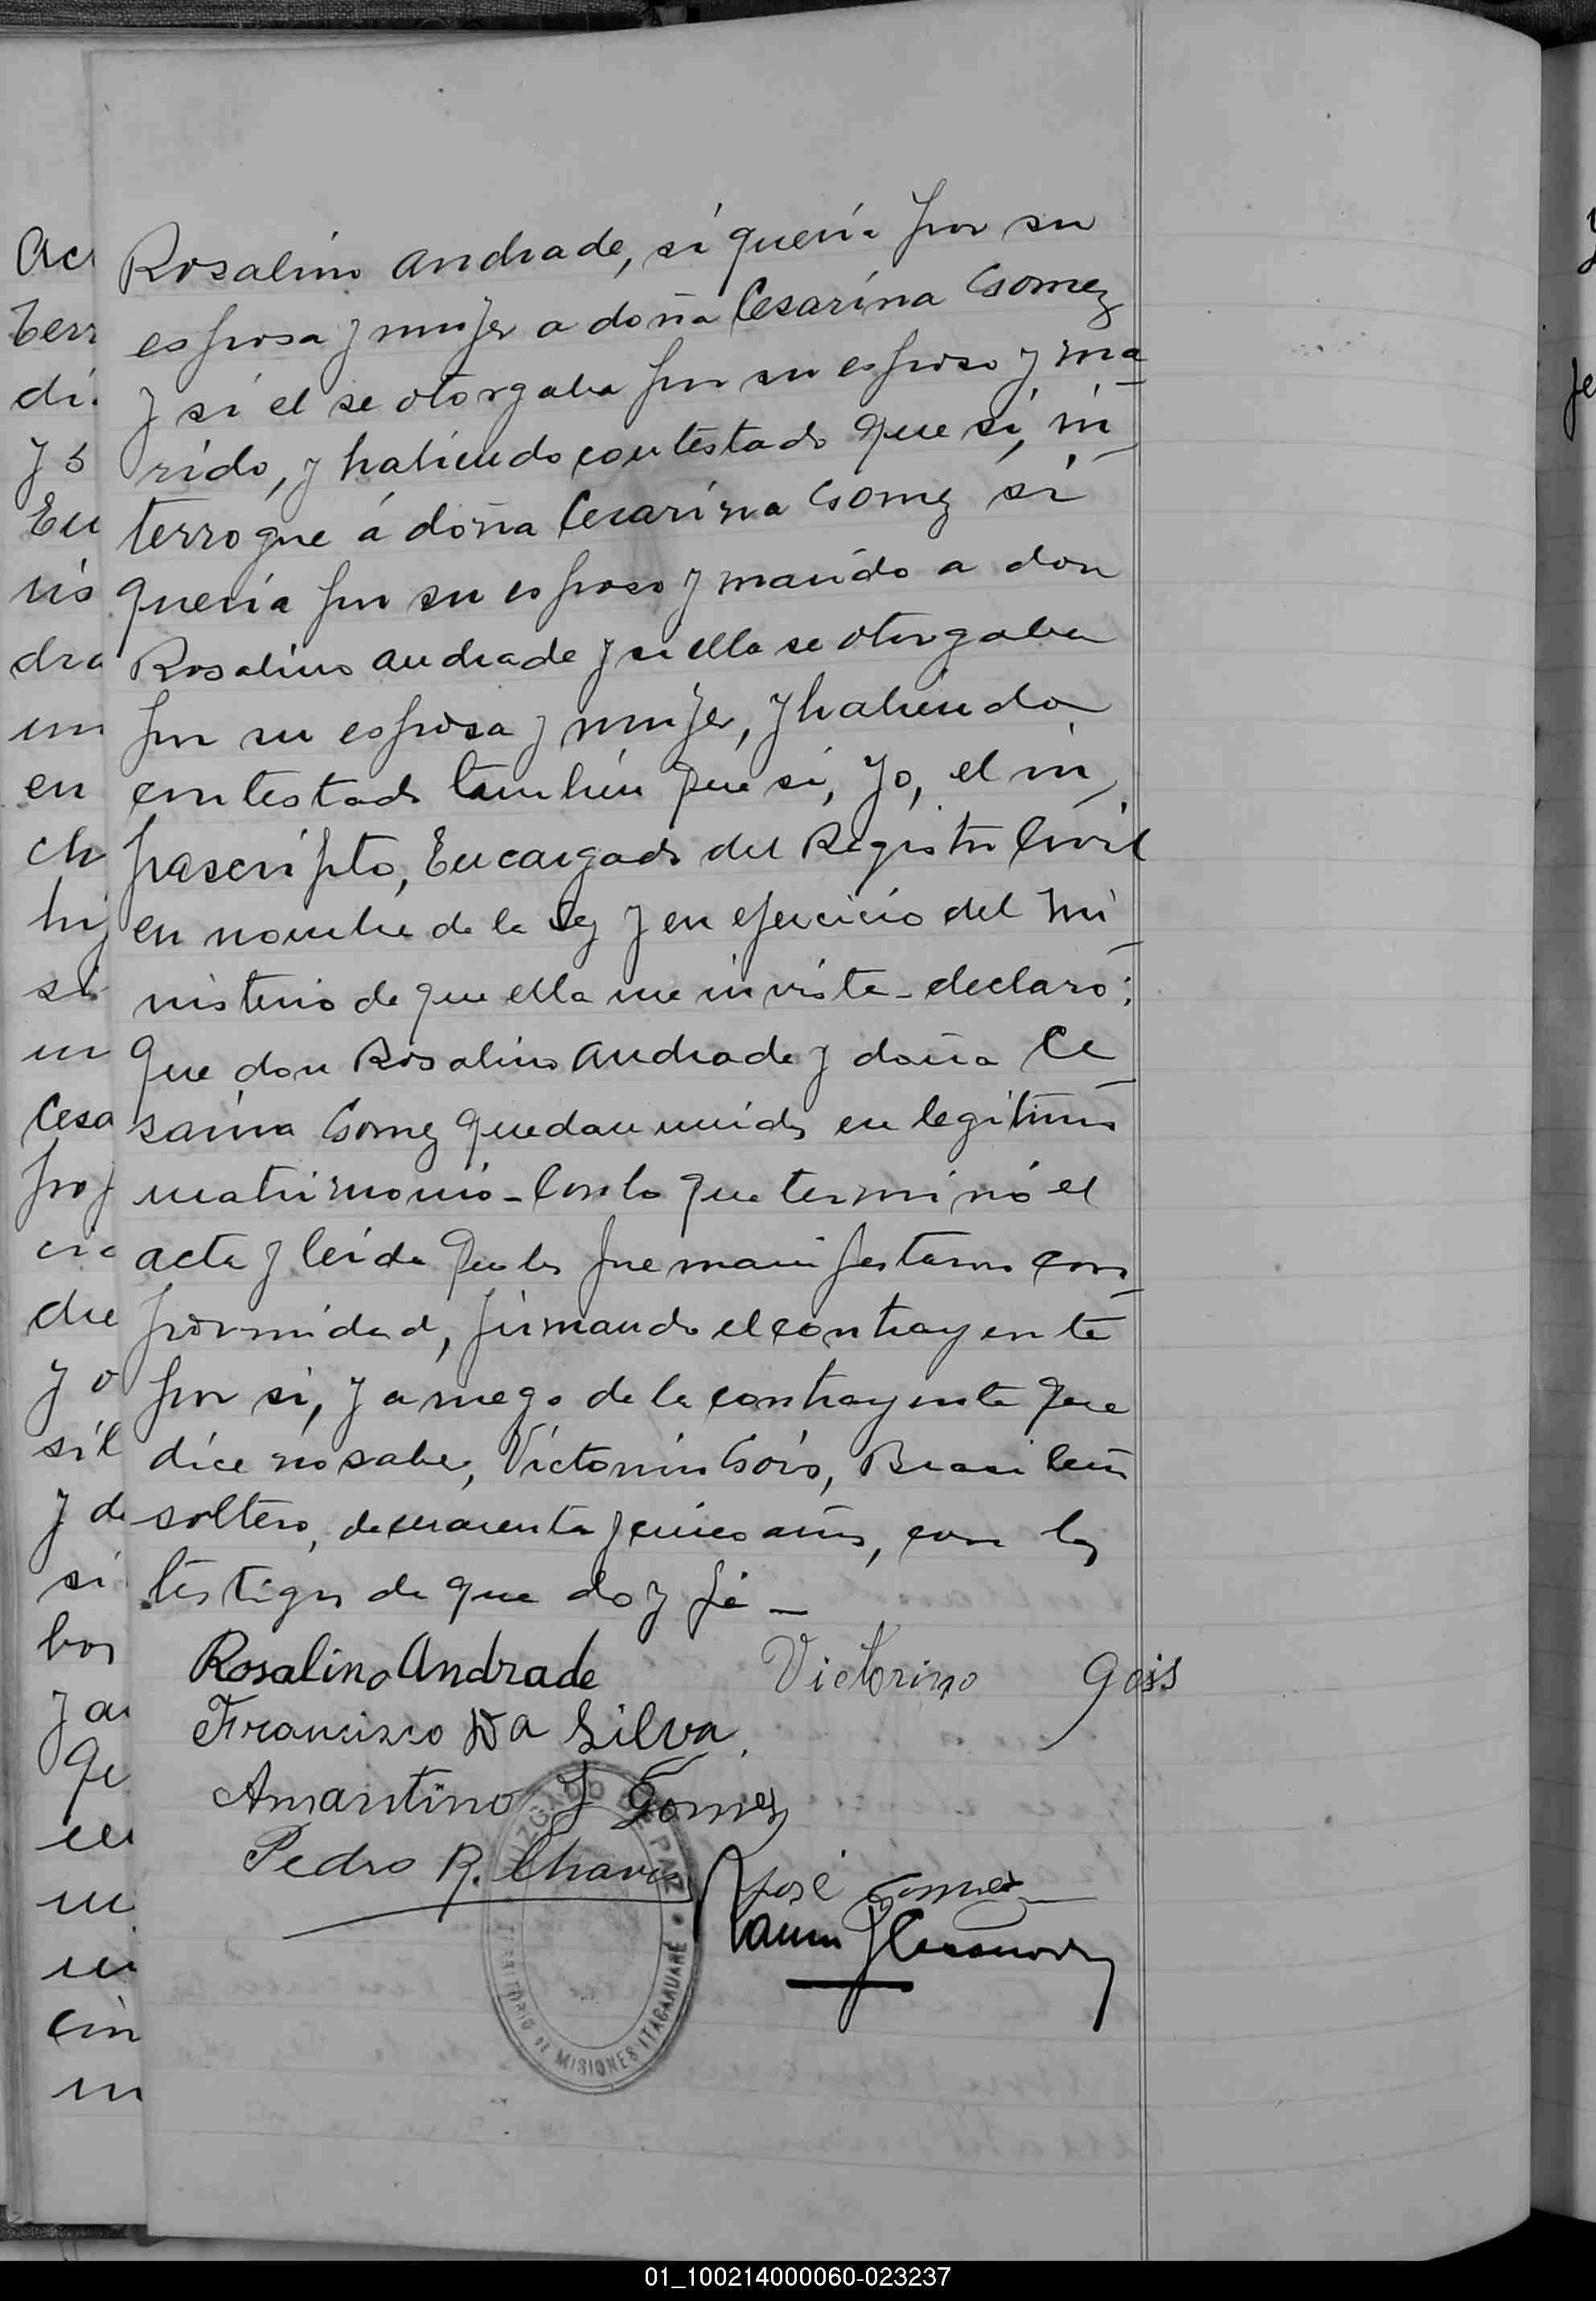 Rosalino Andrade, si quería por su
esposa y mujer a doña Cesarina Gomez
y si el se otorgaba por su esposo y ma-
rido, y habiendo contestado que si, in-
terrogue á doña Cesarina Gomez si
quería por su esposo y marido a don
Rosalino Andrade y si ella se otorgaba
por su esposa y mujer, y habiendo
contestado también que si, yo, el in-
frascripto, Encargado del Registro Civil
en nombre de la Ley y en ejercicio del mi-
nisterio de que ella me inviste - declaro:
Que don Rosalino Andrade y doña Ce-
sarina Gomez quedan unidos en legítimo
matrimonio - Con lo que terminó el
acta y leída que les fue manifestaron con-
formidad, firmando el contrayente
por si, y a ruego de la contrayente que
dice no saber, Victorino Góis, Brasileño
soltero, de cuarenta y cinco años, con los
testigos de que doy fé -
Rosalino Andrade Victorino Gois
Francisco Da Silva.
Amantino J Gomez
Pedro R. Chaves
José Gomez
JUZGADO DE PAZ
TERRITORIO DE MISIONES ITACARUARÉ
Act
terr
di
y s
Eu
ris
dra
un
en
ch
hij
si
un
Cesa
prof
cic
die
y o
sil
y de
si
bor
y a
Que
cin
01_100214000060-023237